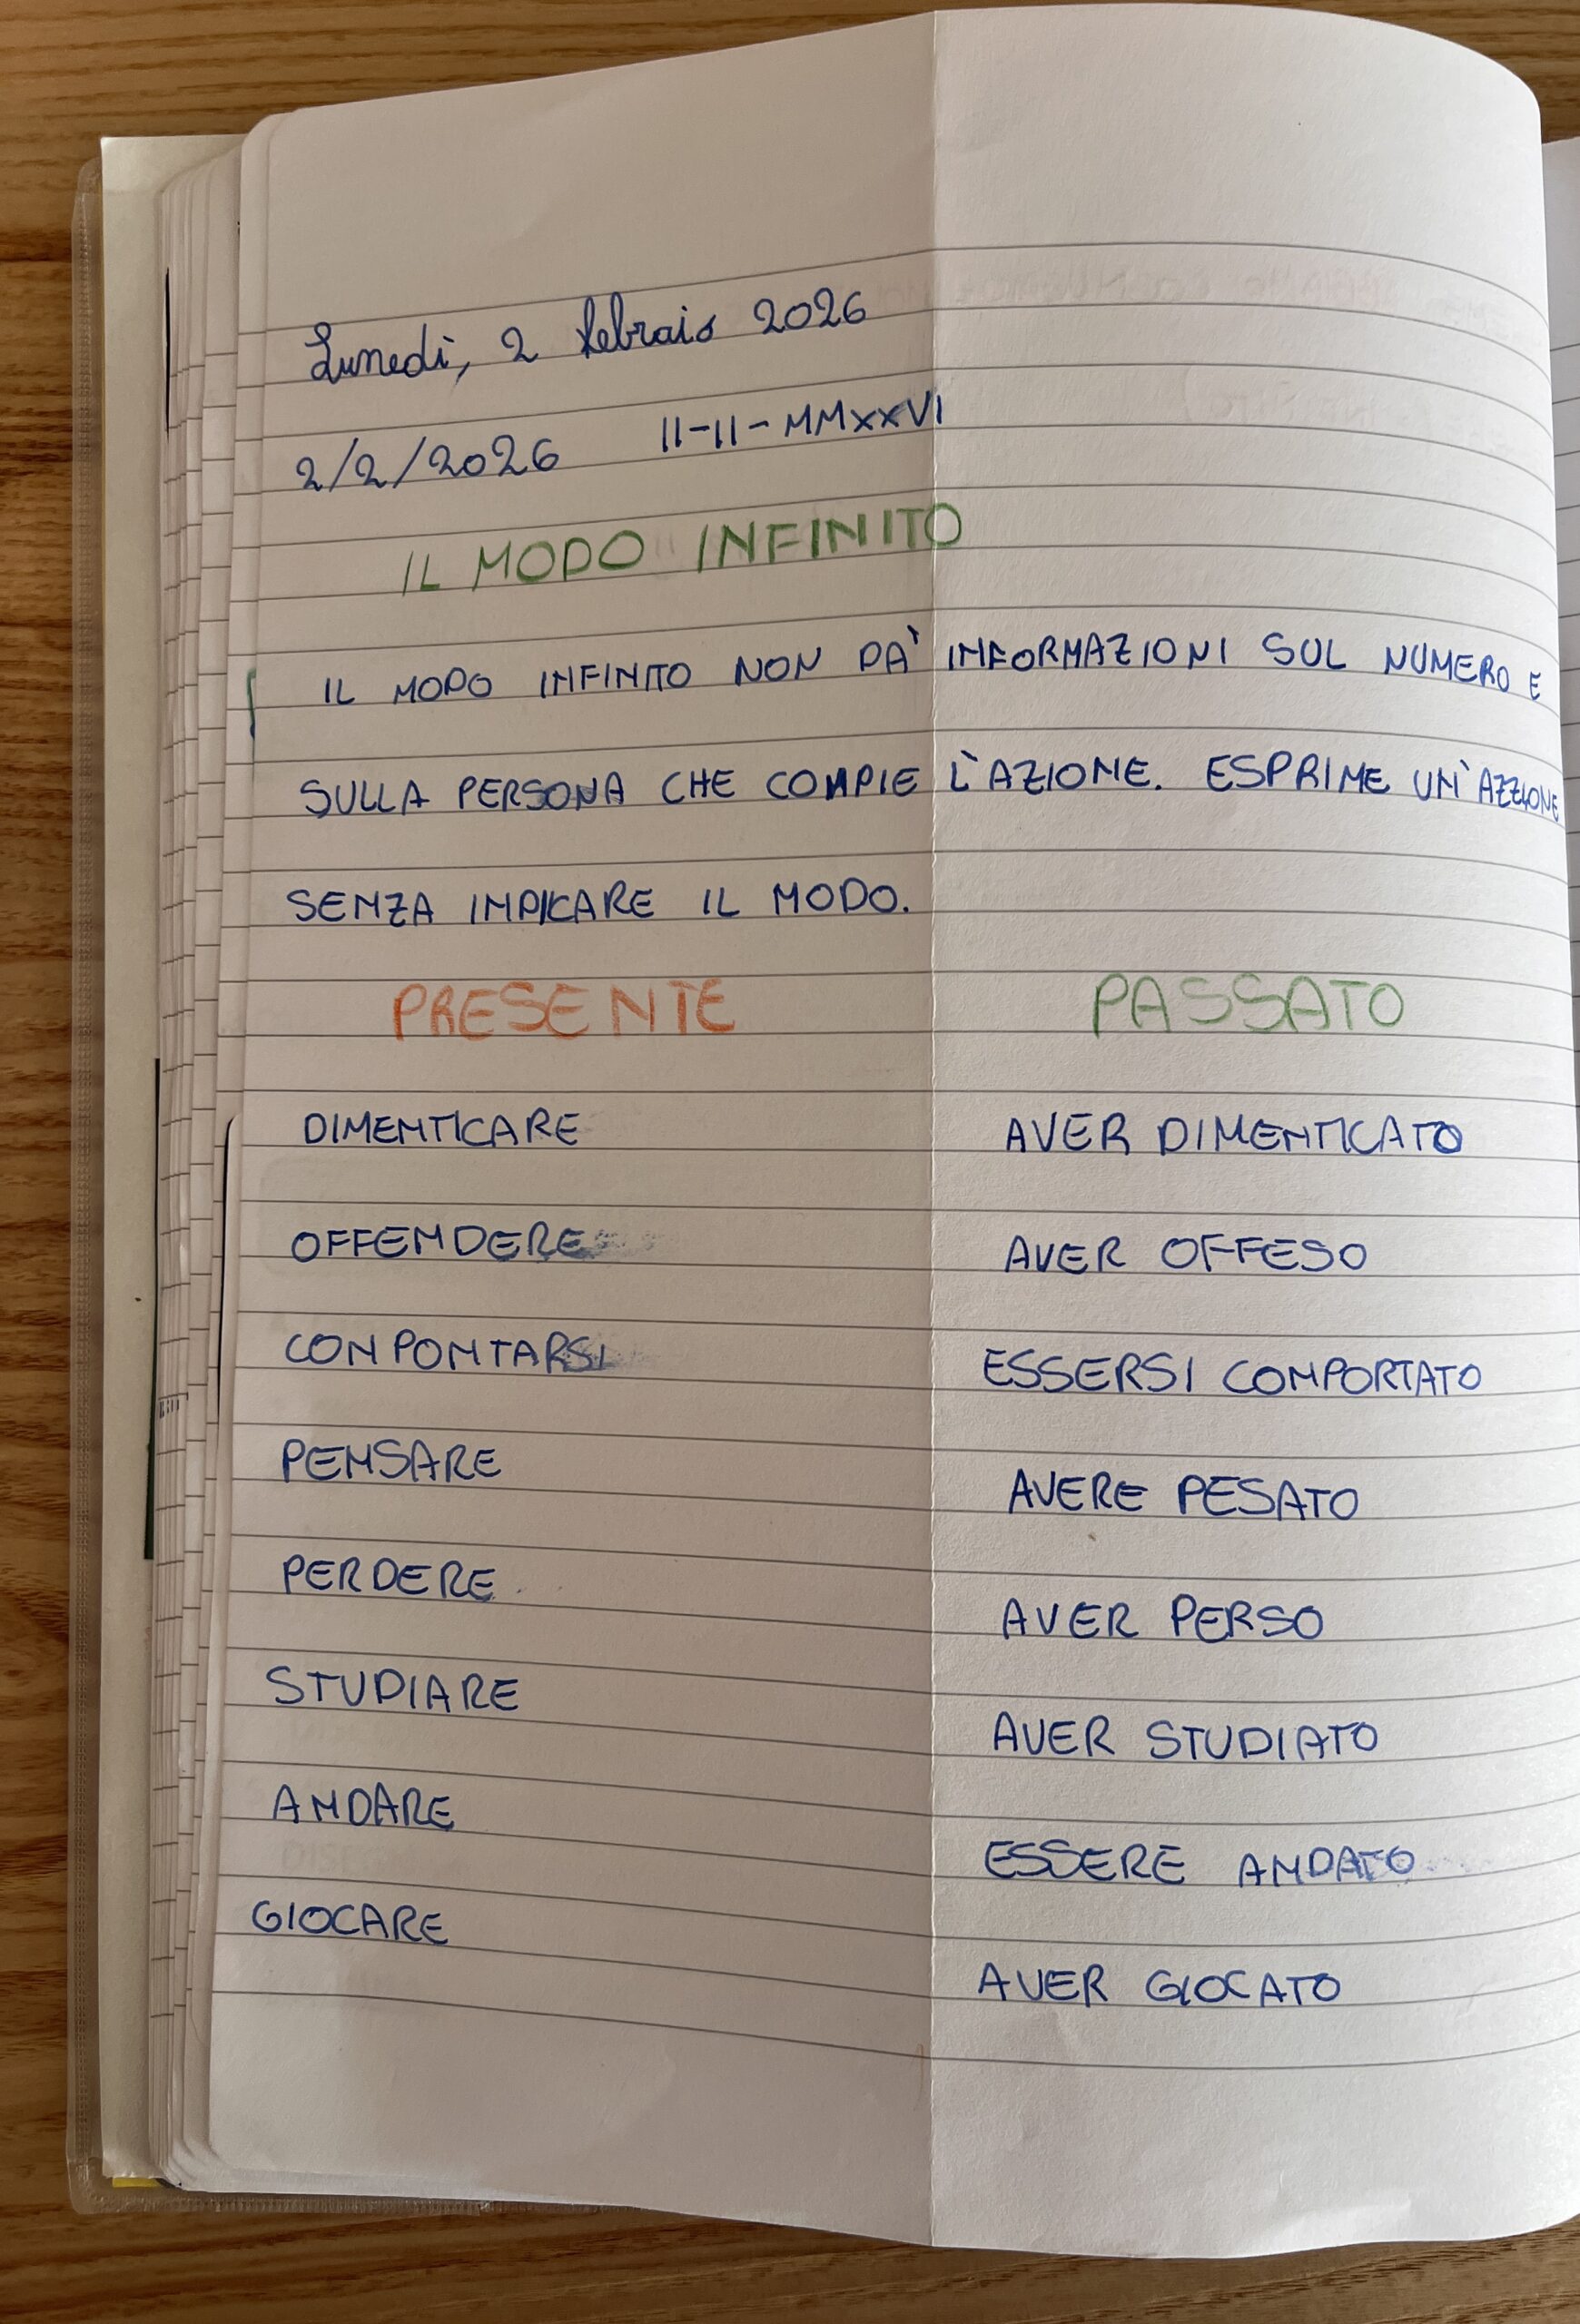 Lunedì, 2 febraio 2026
2/2/2026 II-II-MMXXVI
IL MODO INFINITO
IL MODO INFINITO NON DA' INFORMAZIONI SUL NUMERO E
SULLA PERSONA CHE COMPIE L'AZIONE. ESPRIME UN'AZZIONE
SENZA IMPICARE IL MODO.
PRESENTE PASSATO
DIMENTICARE AVER DIMENTICATO
OFFENDERE AVER OFFESO
CONPONTARSI ESSERSI COMPORTATO
PENSARE AVERE PESATO
PERDERE AVER PERSO
STUDIARE AVER STUDIATO
ANDARE ESSERE ANDATO
GIOCARE AVER GIOCATO